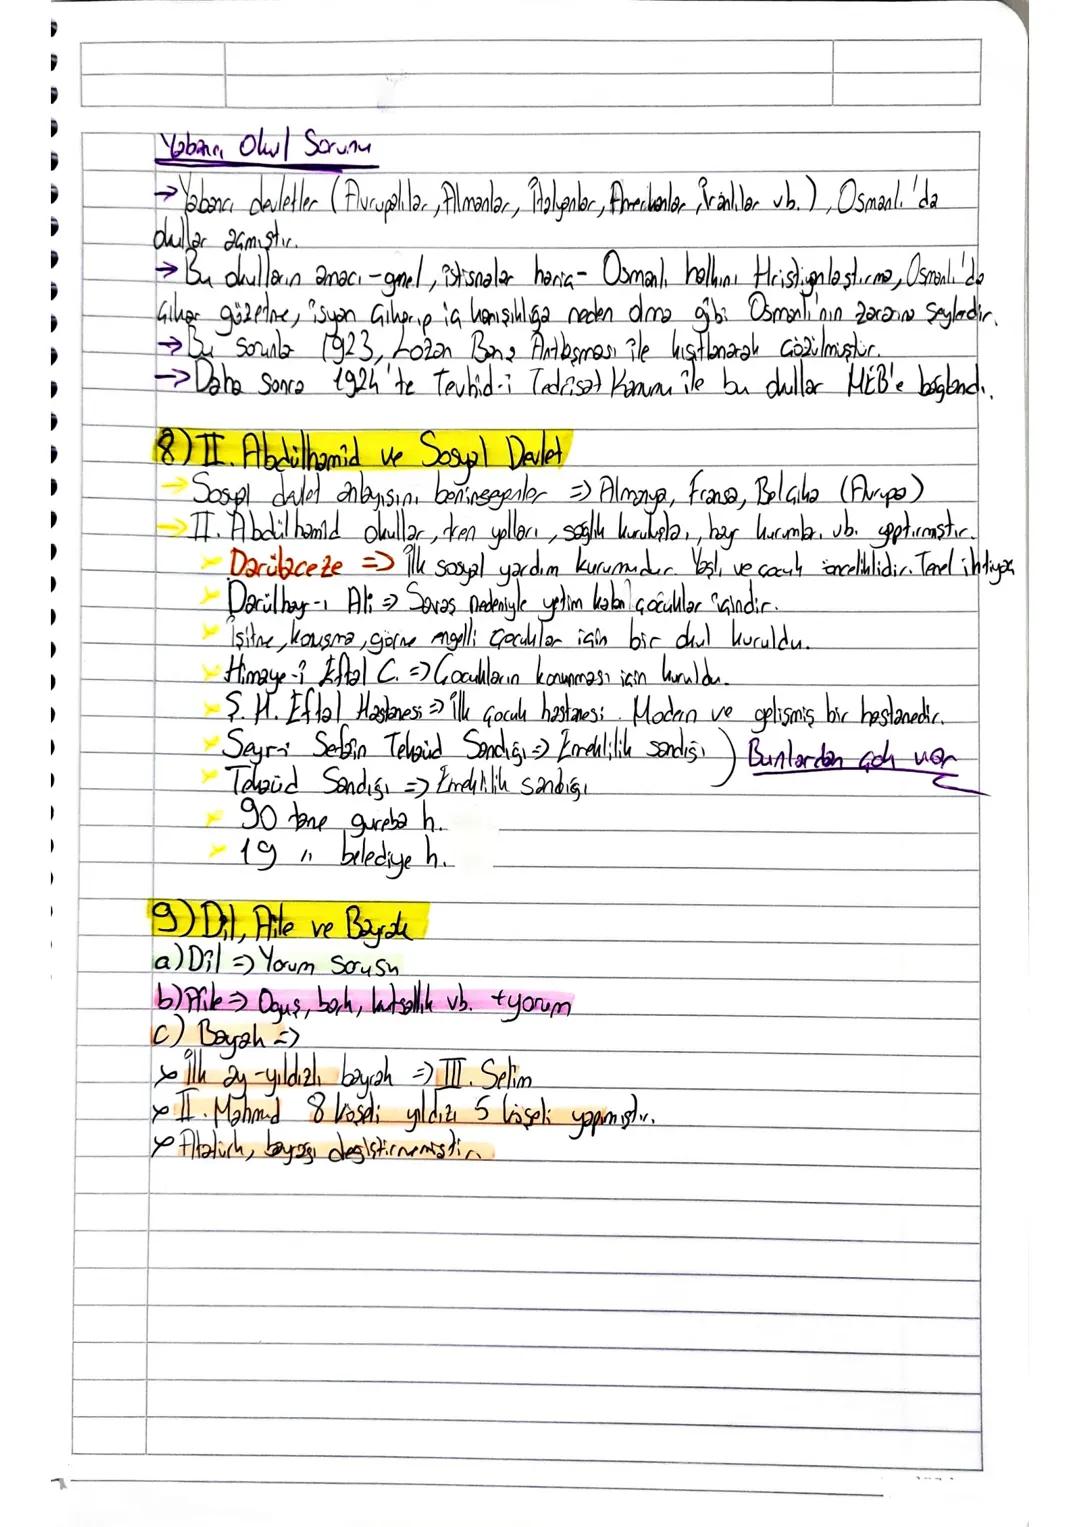 Yabancı Okul Sorunu
→ Yabancı devletler (Avrupalılar, Almanlar, İtalyanlar, Amerikanlar, İranlılar vb.), Osmanlı'da
okullar açmıştır.
→ Bu okulların amacı -genel, istisnalar hariç- Osmanlı halkını Hristiyanlaştırma, Osmanlı'da
çıkar gözetme, isyan çıkarıp iç karışıklığa neden olma gibi Osmanlı'nın zararına şeylerdir.
→ Bu sorunlar 1923, Lozan Barış Antlaşması ile kısıtlanarak çözülmüştür.
→ Daha sonra 1924'te Tevhid-i Tedrisat Kanunu ile bu okullar MEB'e bağlandı.
8) II. Abdülhamid ve Sosyal Devlet
→ Sosyal devlet anlayışını benimseyenler => Almanya, Fransa, Belçika (Avrupa)
→ II. Abdülhamid okullar, tren yolları, sağlık kuruluşları, hayır kurumları vb. yaptırmıştır.
Darülaceze => İlk sosyal yardım kurumudur. Yaşlı ve çocuk önceliklidir. Temel ihtiyaç
Darülhayr-ı Ali => Savaş nedeniyle yetim kalan çocuklar içindir.
İşitme, konuşma, görme engelli çocuklar için bir okul kuruldu.
Himaye-i Etfal C. => Çocukların korunması için kuruldu.
Ş. H. Etfal Hastanesi => İlk çocuk hastanesi. Modern ve gelişmiş bir hastanedir.
Seyr-i Sefain Tekaüd Sandığı => Emeklilik sandığı ) Bunlardan çok var
Tekaüd Sandığı => Emeklilik sandığı
90 tane gureba h.
19 " belediye h.
9) Dil, Aile ve Bayrak
a) Dil => Yorum Sorusu
b) Aile => Oguş, bark, kutsallık vb. + yorum
c) Bayrak =>
İlk ay-yıldızlı bayrak => III. Selim
II. Mahmud 8 köşeli yıldızı 5 köşeli yapmıştır.
Atatürk, bayrağı değiştirmemiştir.